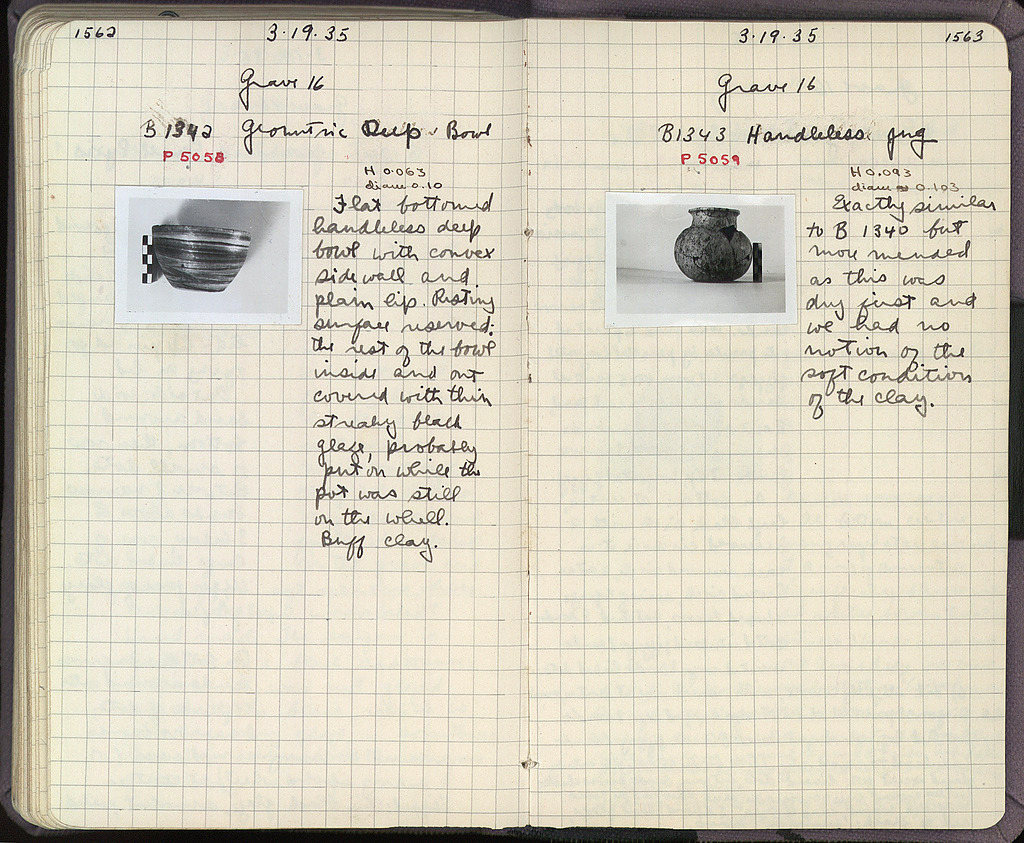 1562
3·19·35
Grave 16
B 1342 Geometric Deep Bowl
P 5058
H 0.063
diam 0.10
Flat bottomed
handleless deep
bowl with convex
side wall and
plain lip. Resting
surface reserved:
the rest of the bowl
inside and out
covered with thin
streaky black
glaze, probably
put on while the
pot was still
on the wheel.
Buff clay.
3·19·35
1563
Grave 16
B1343 Handleless jug
P 5059
H 0.093
diam 0.103
Exactly similar
to B 1340 but
more mended
as this was
dug first and
we had no
notion of the
soft condition
of the clay.